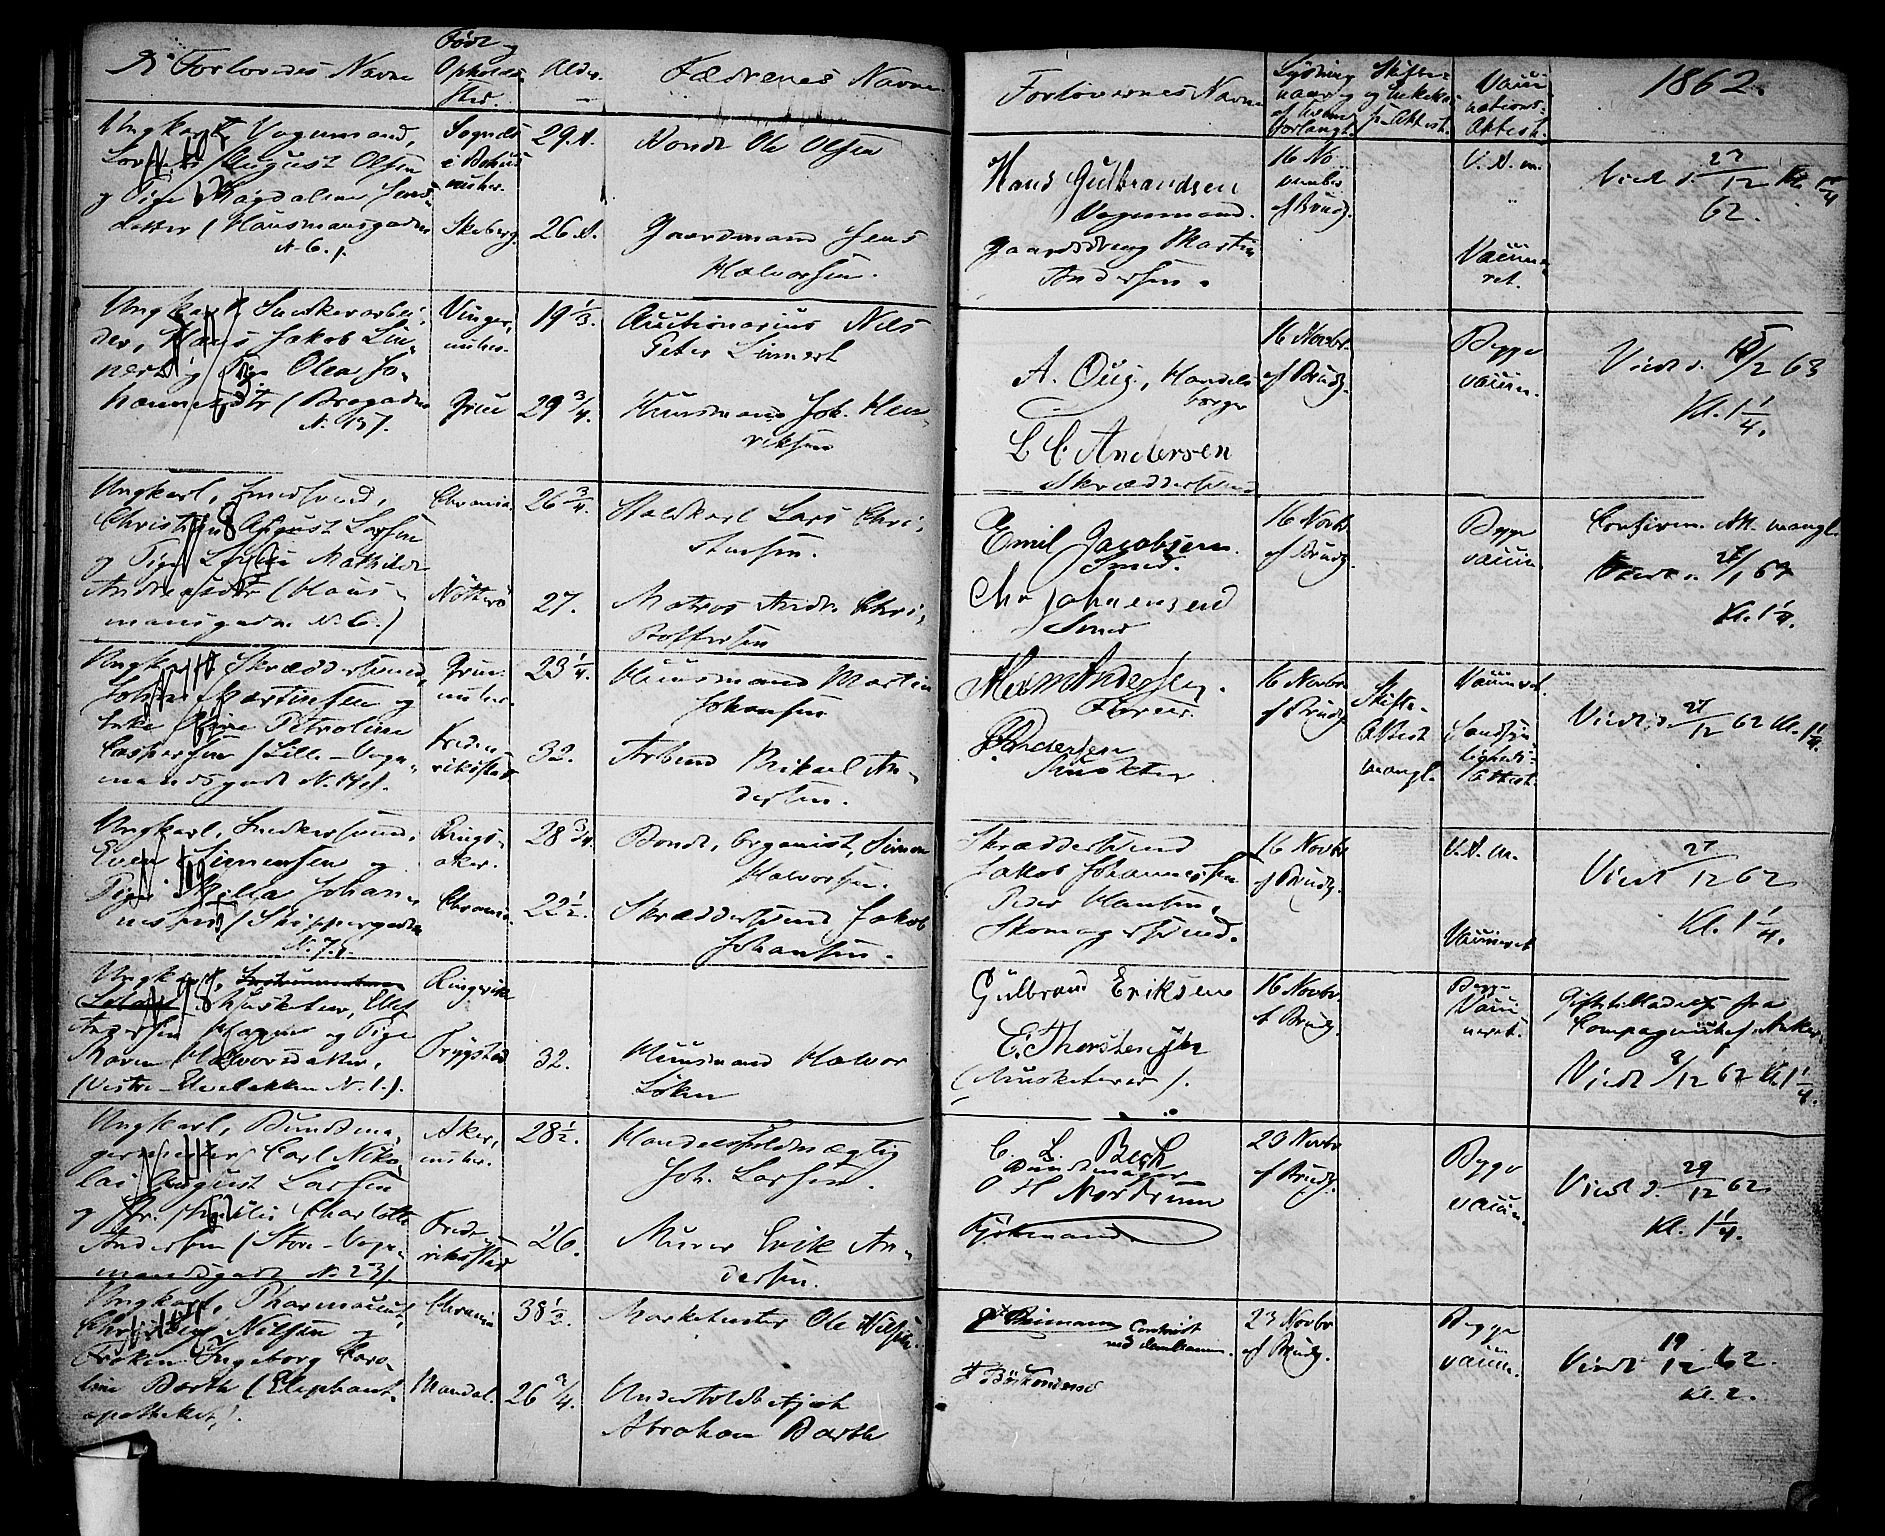 De Forlovedes Navne
Føde og
Opholds
Sted.
Alder.
Fædrenes Navne
Forlovernes Navne
Lysning
naar og
af hvem
forlangt.
Skifte-
Attest.
Vacci-
nations-
Attest.
1862.
Ungkarl, Vognmand,
August Olsen
og Pige Magdalena Jens-
datter (Hausmansgaden
N. 6.).
Sogndal
i
Skeberg
29. A.
26. A.
Bonde Ole Olsen
Gaardmand Jens
Halvorsen.
Hans Gulbrandsen
Vognmand.
Gaardsdreng Martin
Andersen.
16 No
vember
af Brudg.
V. A. m.
Vaccine-
ret.
Viet d. 27/12 Kl. 1 1/4
62.
Ungkarl Snedkerarbei-
der, Hans Jakob Lin-
nert og Pige Olea Jo-
hannesdtr (Brogaden
N. 15).
Vinger,
Grue
19 1/3.
29 3/4.
Auctionarius Nils
Peter Linnert
Huusmand Joh. Hen-
riksen
A. Oug, Handels
borger
L C Andersen
Skræddersvend
16 Novbr.
af Brudg.
Begge
vaccin.
Viet d. 15/2 63
Kl. 1 1/4.
Ungkarl, Smedsvend,
Christian August Larsen
og Pige Mathilde
Andreasdtr (Haus-
mansgaden N. 6.)
Chrania
Nötterö
26 3/4.
27.
Staldkarl Lars Chri-
stensen.
Matros Andr. Chri-
stoffersen
Emil Jacobsen.
Smed.
Chr Johnensend
Smed
16 Novbr.
af Brudg.
Begge
vaccin.
Confirm. Att. mangl.
Viet d. 21/1 67
Kl. 1 1/4.
Ungkarl, Skræddersvend,
Johan Martinsen og
Enke Petroline
Caspersen (Lille-Vogn-
mandsgade N. 14).
Grue
Frede-
rikstad
23 1/4.
32.
Huusmand Martin
Johansen
Arbmd Mikael An-
dersen.
Alex M Andersen.
Andersen
Musketer
16 Novbr
af Brudg.
Skifte-
Attest
mangl.
Vaccineret.
Sandsyn-
ligheds-
Attest.
Viet d. 27/12 62 Kl. 1 1/4.
Ungkarl, Snedkersvend,
Even Simensen og
Pige Milla Johan-
nesen (Skippergaden
N. 7.).
Rings-
aker.
Chrania
28 3/4.
22 1/2.
Bonde, Organist, Simen
Halvorsen.
Skræddersvend Jakob
Johansen.
Skræddersvend
Jakob Johannessen
Peder Hansen,
Skomagersvend.
16 Novbr
af Brudg.
V. A. m.
Vaccineret
Viet 27/12 62
Kl. 1 1/4.
Ungkarl,
Musketer, Elef
Andersen Hagen og Pige
Karen Halvorsdatter,
(Vestre-Elvebakken N. 1.).
Ringerike
Trygstad
32.
Huusmand Halvor
Löken
Gulbrand Eriksen
E. Thorstensen
(Musketerer).
16 Novbr.
af Brudg.
Begge
Vacci-
neret.
Giftetilladelse fra
Compagniechef Anker.
Viet 8/12 62 Kl. 1 1/4.
Ungkarl, Bundtma-
germester Carl Niko-
lai August Larsen
og Fr. Emilie Charlotte
Andersen (Store-Vogn-
mandsgade N. 23)
Aker,
Frede-
rikstad
28 1/2.
26.
Handelsfuldmægtig
Joh. Larsen.
Murer Erik An-
dersen.
C. L. Bech
Bundtmager
O H Nordrum
Kjöbmand
23 Novbr
af Brudg.
Begge
vaccin.
Viet d. 29/12 62
Kl. 1 1/4.
Ungkarl, Pharmaceut,
Nilsen og
Frøken Ingeborg Caro-
line Barth (Elephant-
apotheket).
Chrania
Mandal.
38 1/2.
26 3/4.
Marketenter Ole Nilsen.
Underfoldbetjent
Abraham Barth
23 Novbr
af Brudg.
Begge
vaccin.
Viet 19/12 62.
Kl. 2.